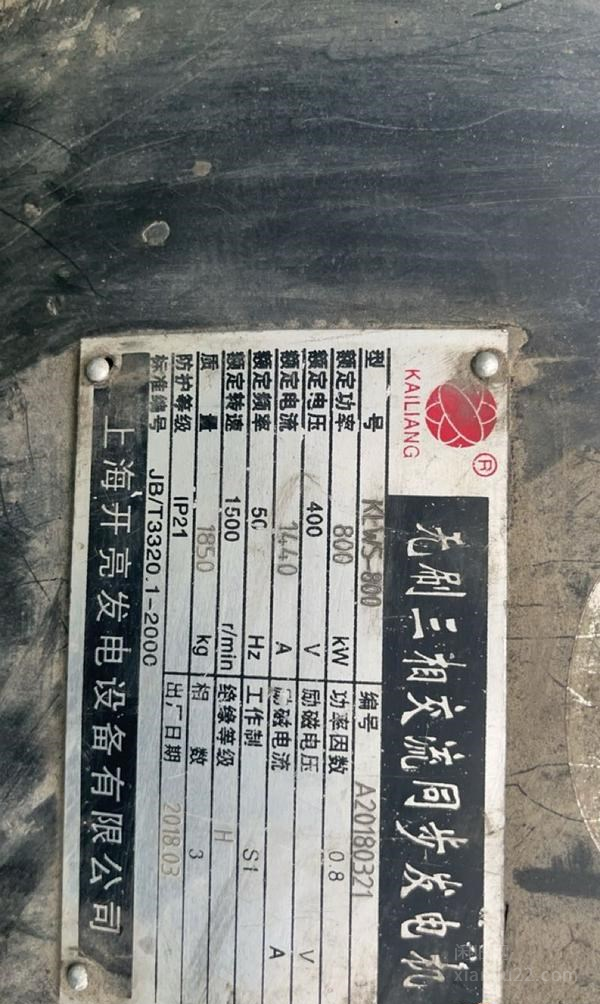 KAILIANG ®
无刷三相交流同步发电机
型 号 KLWS-800 编号 A20180321
额定功率 800 kW 功率因数 0.8
额定电压 400 V 励磁电压 V
额定电流 1440 A 励磁电流 A
额定频率 50 Hz 工作制 S1
额定转速 1500 r/min 绝缘等级 H
质 量 1850 kg 相 数 3
防护等级 IP21 出厂日期 2018.03
标准编号 JB/T3320.1-2000
上海开亮发电设备有限公司